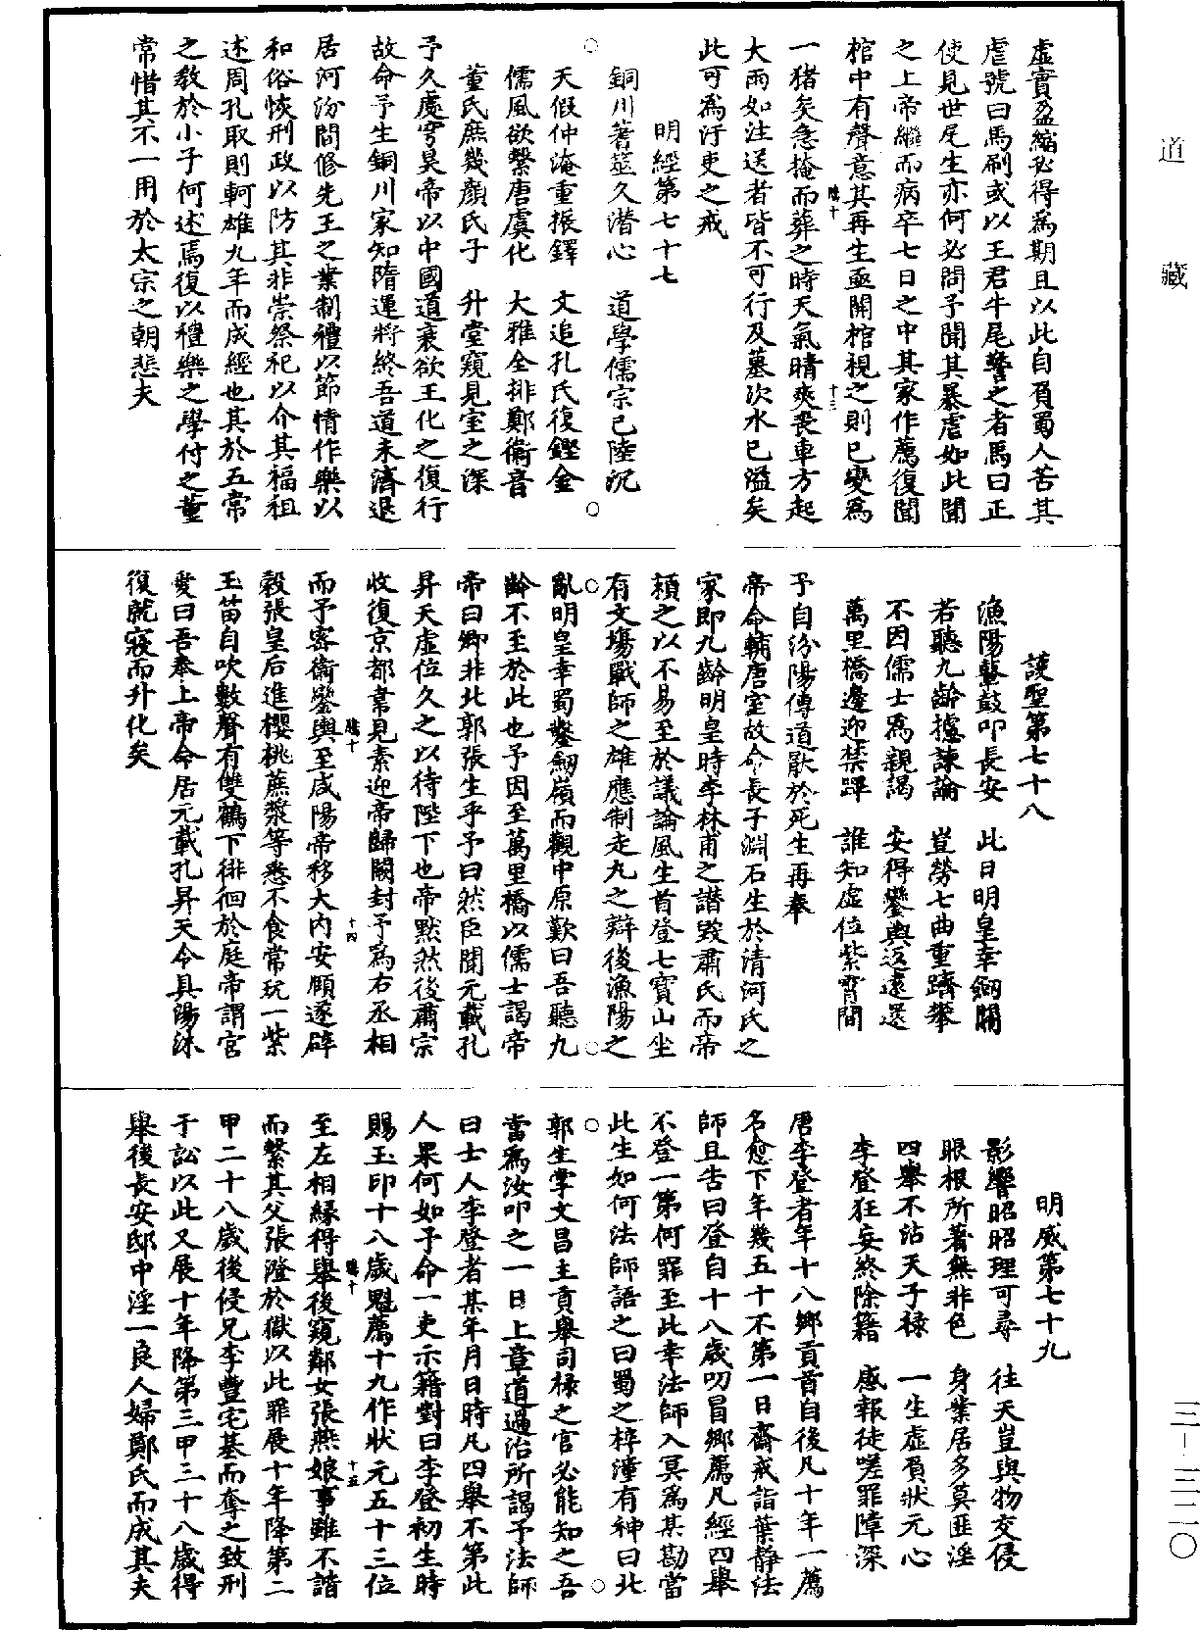 道藏
虛實盈縮必得為期且以此自負蜀人苦其
虐號曰馬刷或以王君牛尾譬之者馬曰正
使見世尾生亦何必問予聞其暴虐如此聞
之上帝繼而病卒七日之中其家作薦復聞
棺中有聲意其再生亟開棺視之則已變為
一猪矣急掩而葬之時天氣晴爽喪車方起
大雨如注送者皆不可行及墓次水已溢矣
此可為汙吏之戒
明經第七十七
銅川著莚久潛心　道學儒宗已陸沉
天假仲淹重振鐸　文追孔氏復鏗金
儒風欲繫唐虞化　大雅全排鄭衞音
董氏庶幾顏氏子　升堂窺見室之深
予久處穹昊帝以中國道衰欲王化之復行
故命予生銅川家知隋運將終吾道未濟退
居河汾間修先王之業制禮以節情作樂以
和俗恢刑政以防其非崇祭祀以介其福祖
述周孔取則軻雄九年而成經也其於五常
之教於小子何述焉復以禮樂之學付之董
常惜其不一用於太宗之朝悲夫
護聖第七十八
漁陽鼙鼓叩長安　此日明皇幸劒關
若聽九齡攄諫論　豈勞七曲重躋攀
不因儒士為親謁　安得鑾輿返遠還
萬里橋邊迎禁蹕　誰知虛位紫霄間
予自汾陽傳道厭於死生再奉
帝命輔唐室故命長子淵石生於清河氏之
家即九齡明皇時李林甫之譖毀肅氏而帝
頼之以不易至於議論風生首登七寶山坐
有文塲戰師之雄應制走丸之辯後漁陽之
亂明皇幸蜀鑿劒嶺而觀中原歎曰吾聽九
齡不至於此也予因至萬里橋以儒士謁帝
帝曰卿非北郭張生乎予曰然臣聞元載孔
昇天虛位久之以待陛下也帝默然後肅宗
收復京都韋見素迎帝歸闕封予為右丞相
而予密衞鑾輿至咸陽帝移大內安頤遂辟
穀張皇后進櫻桃蔗漿等悉不食常玩一紫
玉笛自吹數聲有雙鶴下徘徊於庭帝謂宮
愛曰吾奉上帝命居元載孔昇天令具湯沐
復就寢而升化矣
明威第七十九
影響昭昭理可尋　往天豈與物交侵
眼根所著無非色　身業居多莫匪淫
四舉不沾天子祿　一生虛負狀元心
李登狂妄終除籍　感報徒嗟罪障深
唐李登者年十八鄉貢首自後凡十年一薦
名愈下年幾五十不第一日齋戒詣葉靜法
師且告曰登自十八歲叨冒鄉薦凡經四舉
不登一第何罪至此幸法師入冥為某勘當
此生如何法師語之曰蜀之梓潼有神曰北
郭生掌文昌主貢舉司祿之官必能知之吾
當為汝叩之一日上章道過治所謁予法師
曰士人李登者某年月日時凡四舉不第此
人果何如予命一吏示籍對曰李登初生時
賜玉印十八歲魁薦十九作狀元五十三位
至左相緣得舉後窺鄰女張燕娘事雖不諧
而繫其父張澄於獄以此罪展十年降第二
甲二十八歲後侵兄李豐宅基而奪之致刑
于訟以此又展十年降第三甲三十八歲得
舉後長安邸中淫一良人婦鄭氏而成其夫
三—三二〇